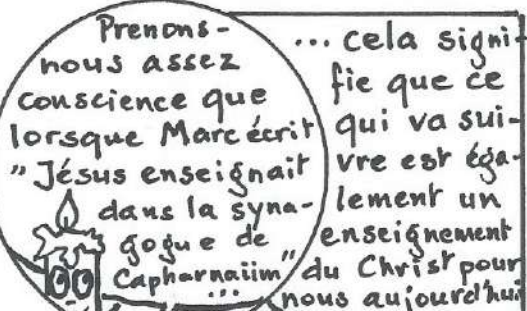 Prenons-
nous assez
conscience que
lorsque Marc écrit
"Jésus enseignait
dans la syna-
gogue de
Capharnaüm"
...
... cela signi-
fie que ce
qui va sui-
vre est éga-
lement un
enseignement
du Christ pour
nous aujourd'hui